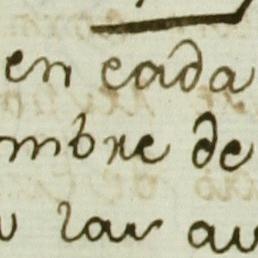 en cada
mbre de
las au